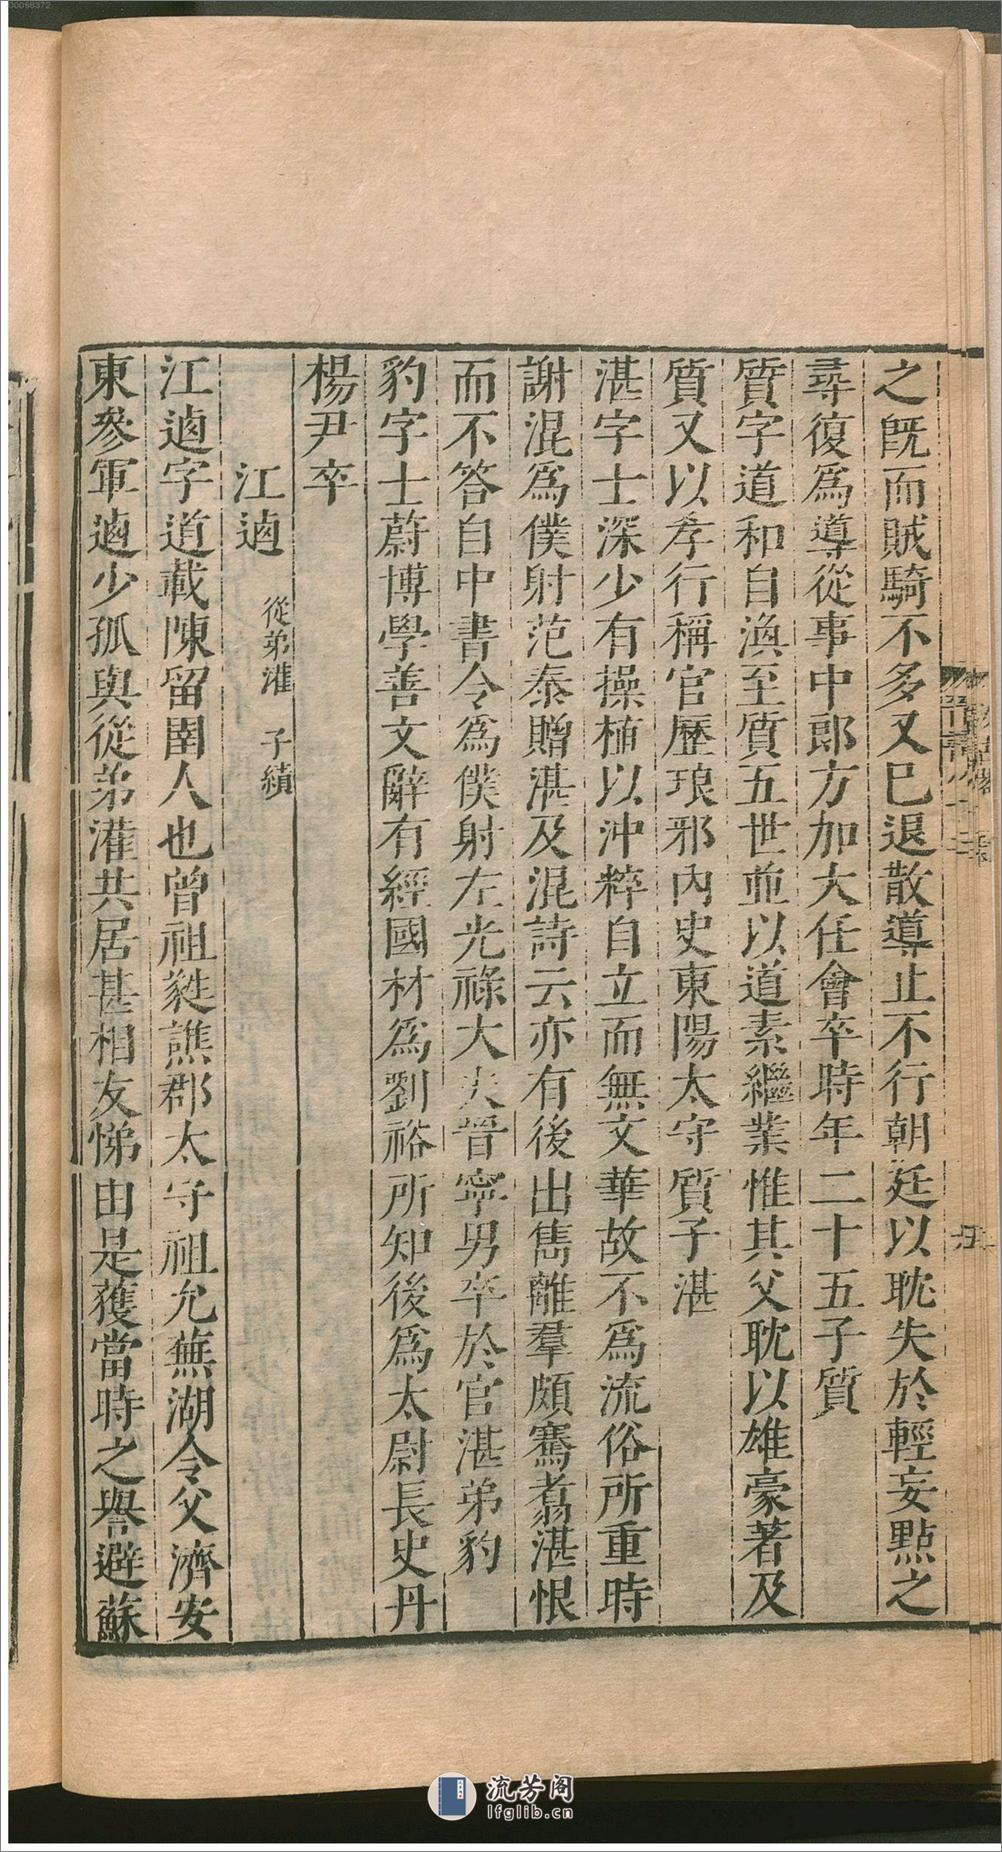 之旣而賊騎不多又巳退散導止不行朝廷以耽失於輕妄黜之
尋復爲導從事中郎方加大任會卒時年二十五子質
質字道和自渙至質五世並以道素繼業惟其父耽以雄豪著及
質又以孝行稱官歷琅邪內史東陽太守質子湛
湛字士深少有操植以沖粹自立而無文華故不爲流俗所重時
謝混爲僕射范泰贈湛及混詩云亦有後出雋離羣頗騫翥湛恨
而不答自中書令爲僕射左光祿大夫晉寧男卒於官湛弟豹
豹字士蔚博學善文辭有經國材爲劉裕所知後爲太尉長史丹
楊尹卒
江逌 從弟灌 子績
江逌字道載陳留圉人也曾祖蕤譙郡太守祖允蕪湖令父濟安
東參軍逌少孤與從弟灌共居甚相友悌由是獲當時之譽避蘇
流芳阁
lfglib.cn
00058372